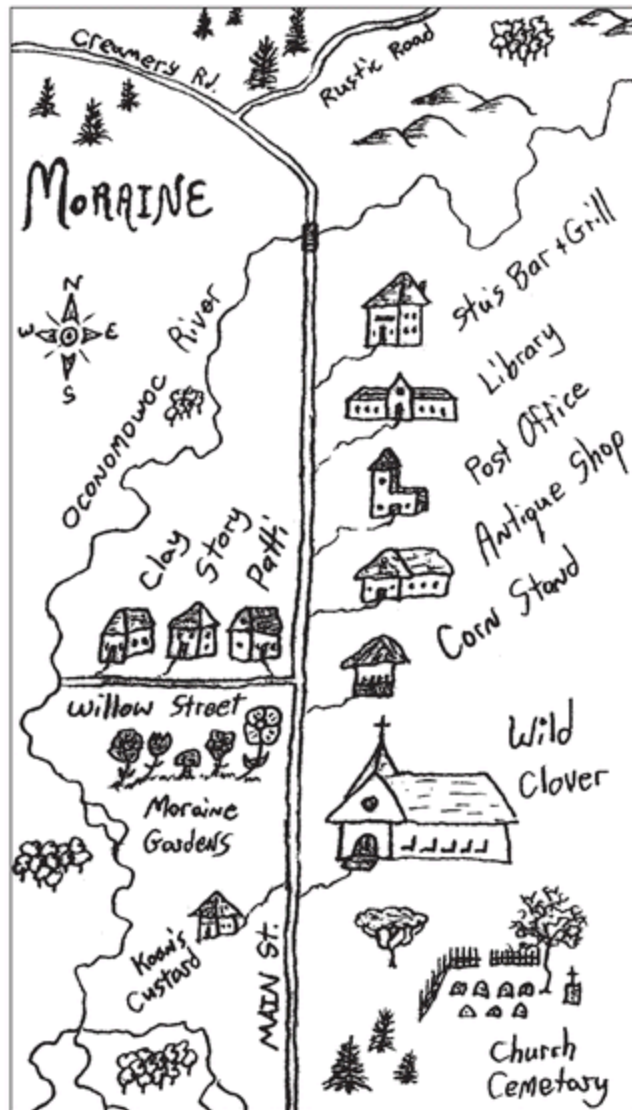 Creamery Rd.
Rustic Road
MORAINE
N
W E
S
OCONOMOWOC River
Stu's Bar + Grill
Library
Post Office
Antique Shop
Corn Stand
Clay
Story
Patti
Willow Street
Moraine
Gardens
Wild
Clover
Koon's
Custard
MAIN ST.
Church
Cemetary